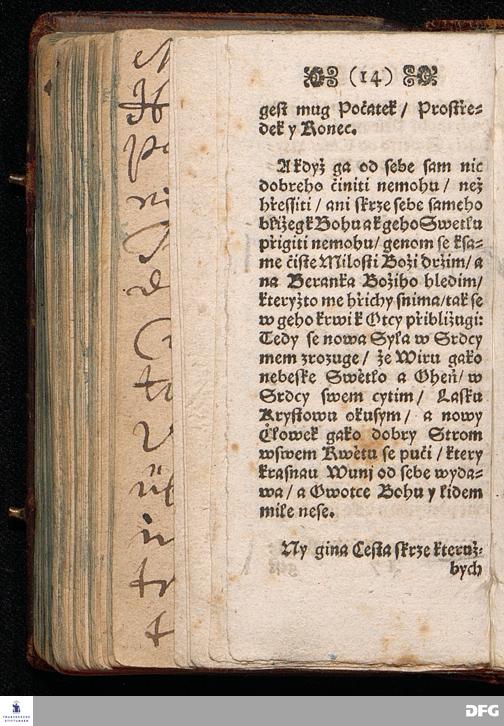 (14)
gest mug Počatek / Prostře-
dek y Konec.
A když ga od sebe sam nic
dobreho činiti nemohu / než
hřessiti / ani skrze sebe sameho
bližegk Bohu a k geho Swetlu
přigiti nemohu / genom se k sa-
me čiste Milosti Boži držim / a
na Beranka Božiho hledim /
kteryžto me hřichy snima / tak se
w geho krwi k Otcy přibližugi:
Tedy se nowa Syla w Srdcy
mem zrozuge / že Wiru gako
nebeske Swètlo a Oheň / w
Srdcy swem cytim / Lasku
Krystowu okusym / a nowy
Člowek gako dobry Strom
w swem Kwètu se puči / ktery
krasnau Wunj od sebe wyda-
wa / a Owotce Bohu y lidem
mile nese.
Ny gina Cesta skrze kteruž-
bych
FRANCKESCHE
STIFTUNGEN
DFG